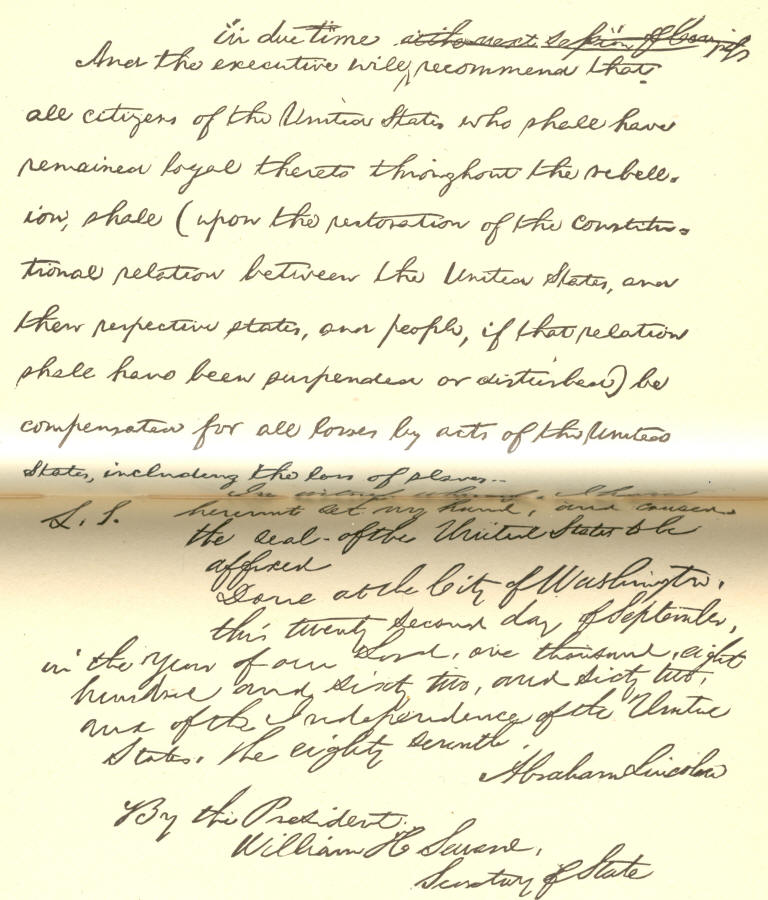 "in due time at the next session of Congress
And the executive will recommend that
all citizens of the United States who shall have
remained loyal thereto throughout the rebell-
ion, shall (upon the restoration of the constitu-
tional relation between the United States, and
their respective states, and people, if that relation
shall have been suspended or disturbed) be
compensated for all losses by acts of the United
States, including the loss of slaves.
In witness whereof, I have
L. S. hereunto set my hand, and caused
the seal of the United States to be
affixed
Done at the City of Washington,
this twenty second day of September,
in the year of our Lord, one thousand, eight
hundred and sixty two, and sixty two,
and of the Independence of the United
States, the eighty seventh.
Abraham Lincoln
By the President.
William H Seward,
Secretary of State